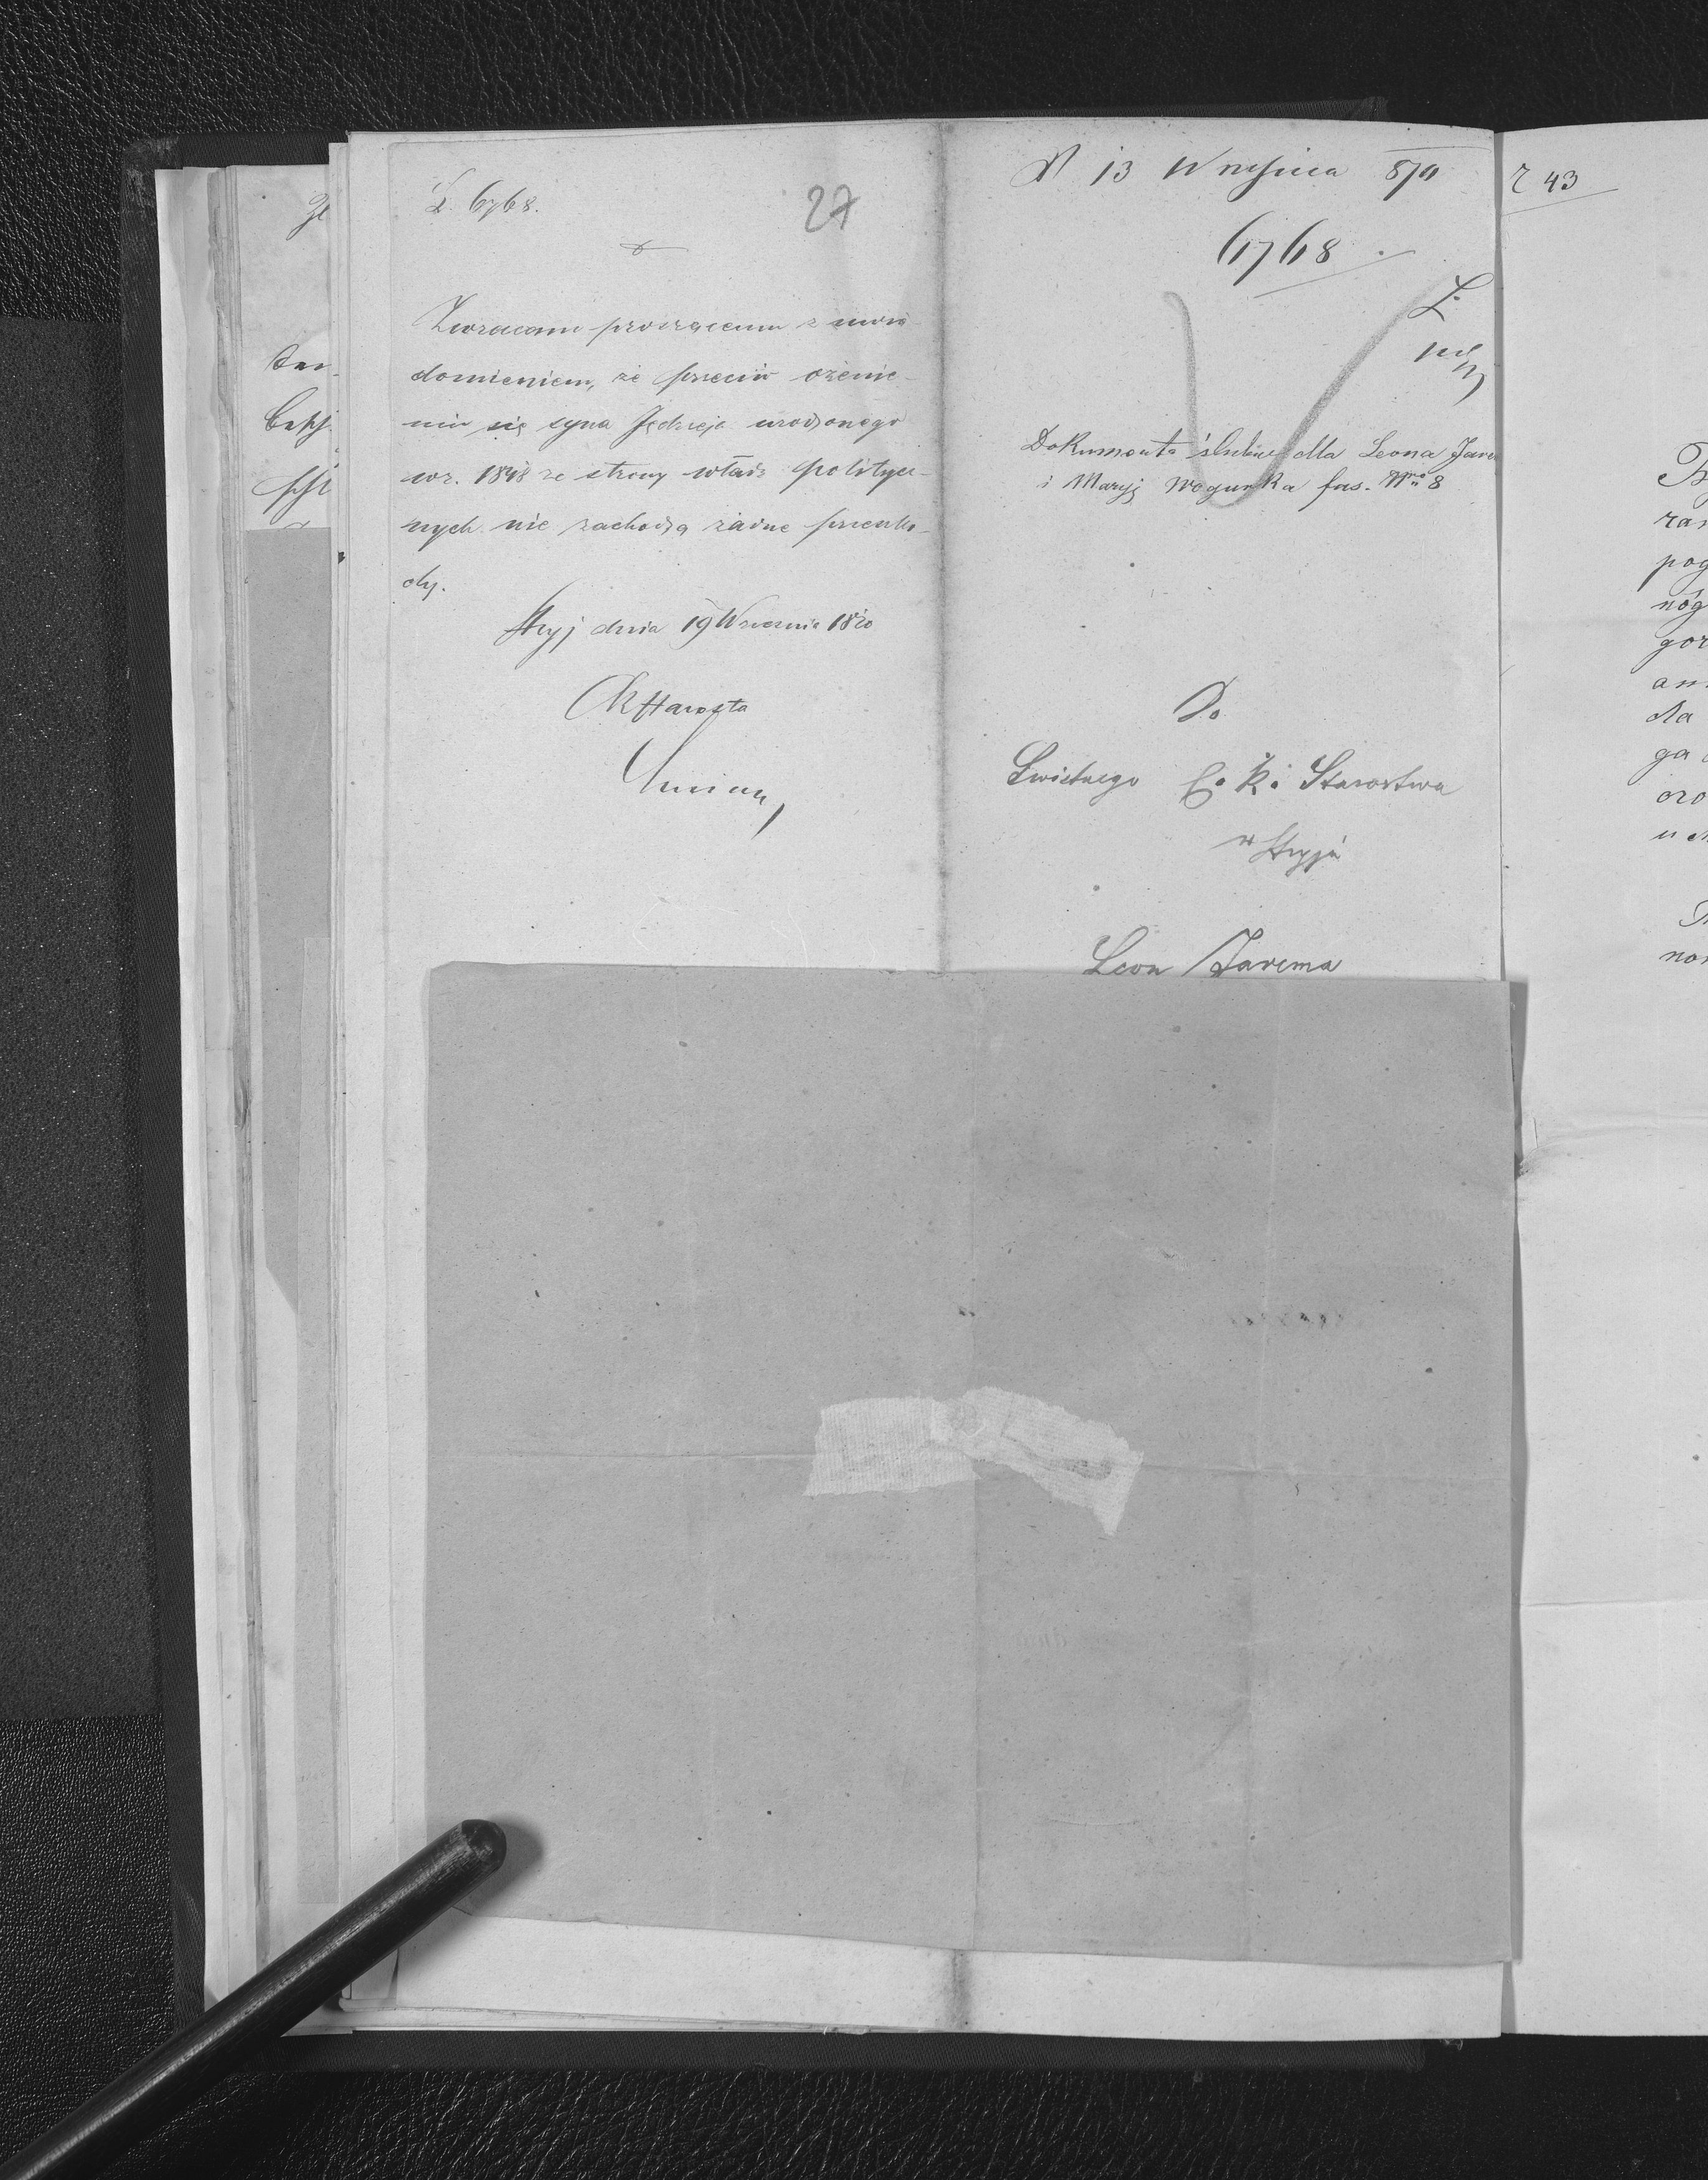 L. 6768.
27
Zwracam proszącemu z uwia-
domieniem, że przeciw ożenie-
niu się syna Jędrzeja urodzonego
w r. 1848 ze strony władz politycz-
nych nie zachodzą żadne przeszko-
dy.
Stryj dnia 19 Września 1870
CKStarosta
13 Września 870
6768.
Dokumenta ślubne dla Leona Jare
i Maryj Wogurka fas. Nro 8
Do
Świetnego C. k. Starostwa
w Stryju
Leon Jarema
43
ran
pog
nóg
gor
an
dla
ga
oro
nor